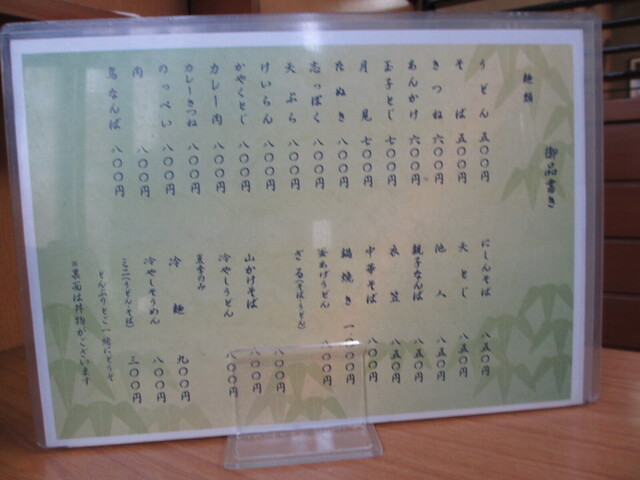 御品書き
麺類
うどん 五〇〇円
そば 五〇〇円
きつね 六〇〇円
あんかけ 六〇〇円
玉子とじ 七〇〇円
月見 七〇〇円
たぬき 八〇〇円
志っぽく 八〇〇円
天ぷら 八〇〇円
けいらん 八〇〇円
かやくとじ 八〇〇円
カレー肉 八〇〇円
カレーきつね 八〇〇円
のっぺい 八〇〇円
肉 八〇〇円
鳥なんば 八〇〇円
にしんそば 八五〇円
天とじ 八五〇円
池入 八五〇円
親子なんば 八五〇円
衣笠 八五〇円
中華そば 八〇〇円
鍋焼き 一、〇〇〇円
釜あげうどん 八〇〇円
ざる(そば・うどん) 八〇〇円
山かけそば 八〇〇円
冷やしうどん 八〇〇円
夏季のみ
冷麺 九〇〇円
冷やしそうめん 八〇〇円
ミニ(うどん・そば) 三〇〇円
どんぶりとご一緒にどうぞ
※裏面は丼物がございます